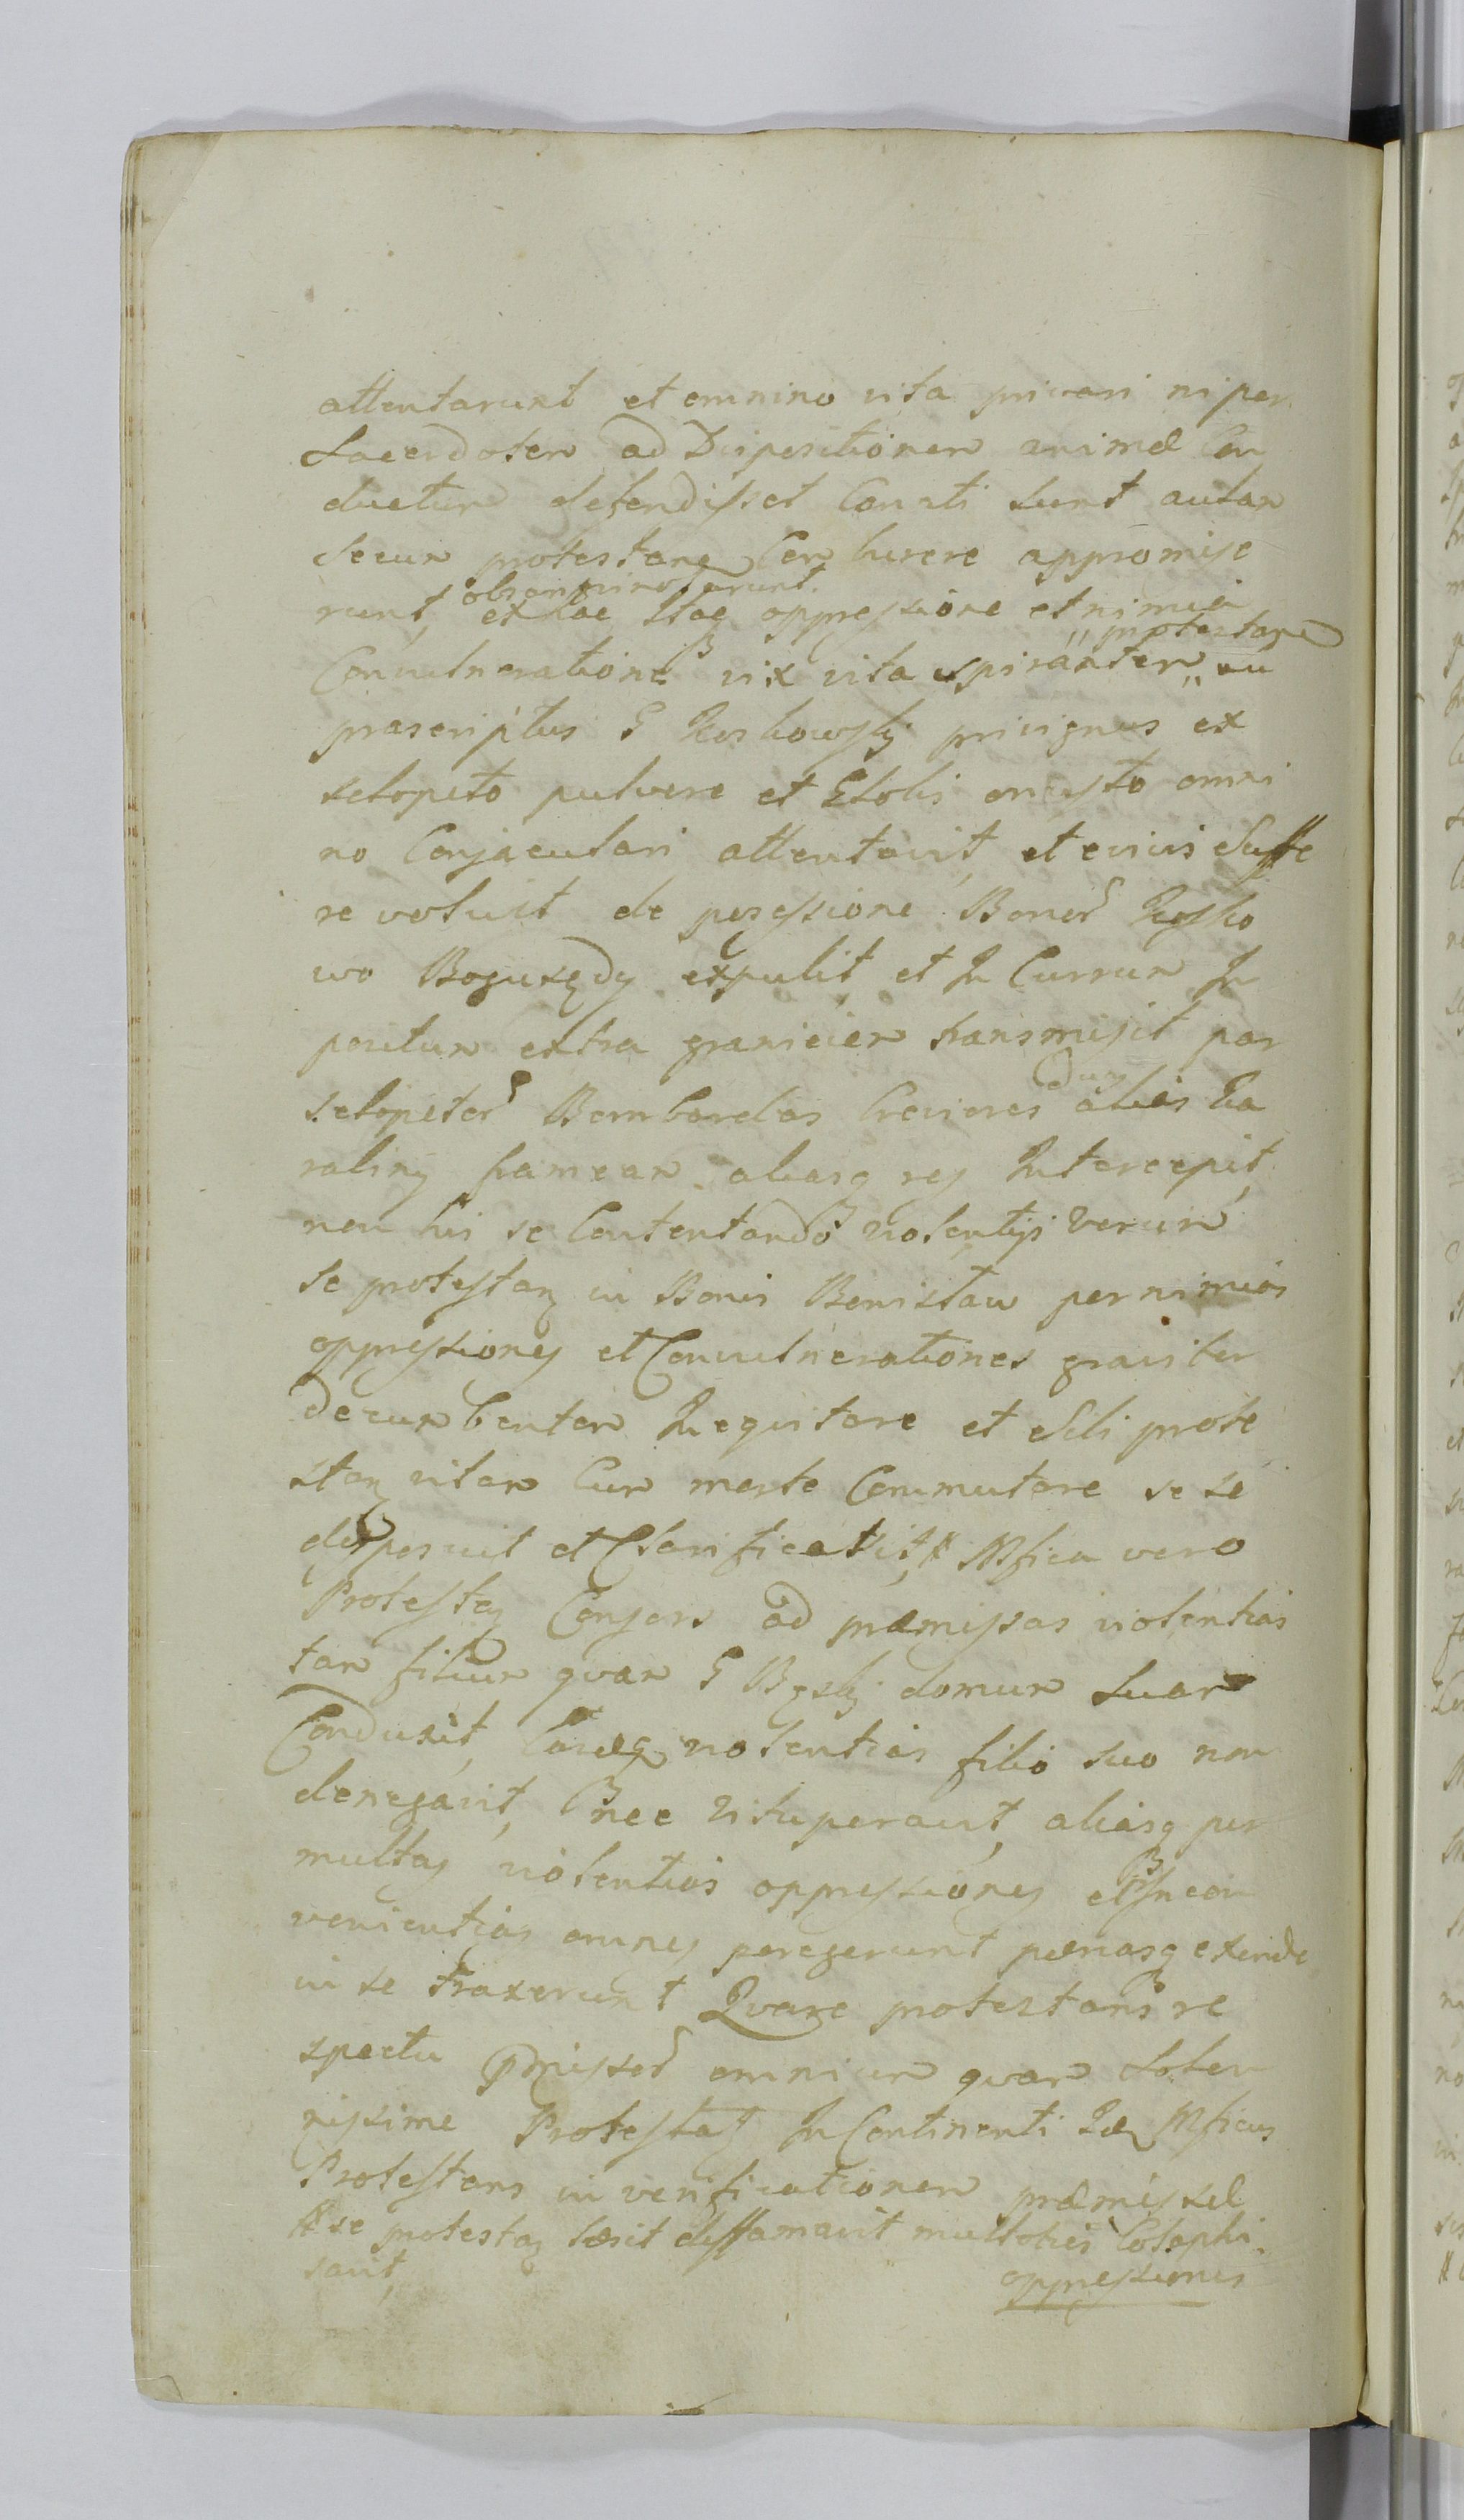 attentarunt et omnino vita privari ni per
Sacerdotem ad Dispositionem animæ Con
ductum defendisset Conati sunt autem
Secum protestanẽ Comburere appromise
runt, exhac Itaq oppressione et nimia
obsangvinoſarunt.
Convulneratione vix vita spirantem „ au
„ protestanẽ
præscriptus G Koskowskj privignus ex
sclopeto pulvere et Globis onusto omni
no Conjaculari attentavit, et enivis Suffe
re voluit de possessione Bonor Kosko
wo Boguszędy expulit, et In Currum Im
positum extra graniciem transmisit par
sclopetor Bombardas breviores duas alias Ka
rabiny frameam aliasq res Intercepit,
non his se Contentando violentijs verum
se protestan in Bonis Bonisław per nimias
oppressiones et Convulnerationes graviter
decumbentem Inequitare et Sibi prote
stan vitam Cum morte Commutare se se
disposuit et Clarificavit, # Mfica vero
Protestan Consors ad præmissas violentias
tam filium quam G Bgskj domum Suam
Conduxit, Easdq violentias filio suo non
denegavit, nec Vituperavit, aliasq per
multas violentias oppressiones et Incon
venientias omnes peregerunt pænasq exinde
in se traxerunt Qvare protestans re
spectu Pmissor omnium quam Solen
nissime Protestat In Continenti Idẽ Mficus
Protestans in verificationem præmissæ
# se protestan læsit diffamavit multoties Colaphi
savit,
oppressionis